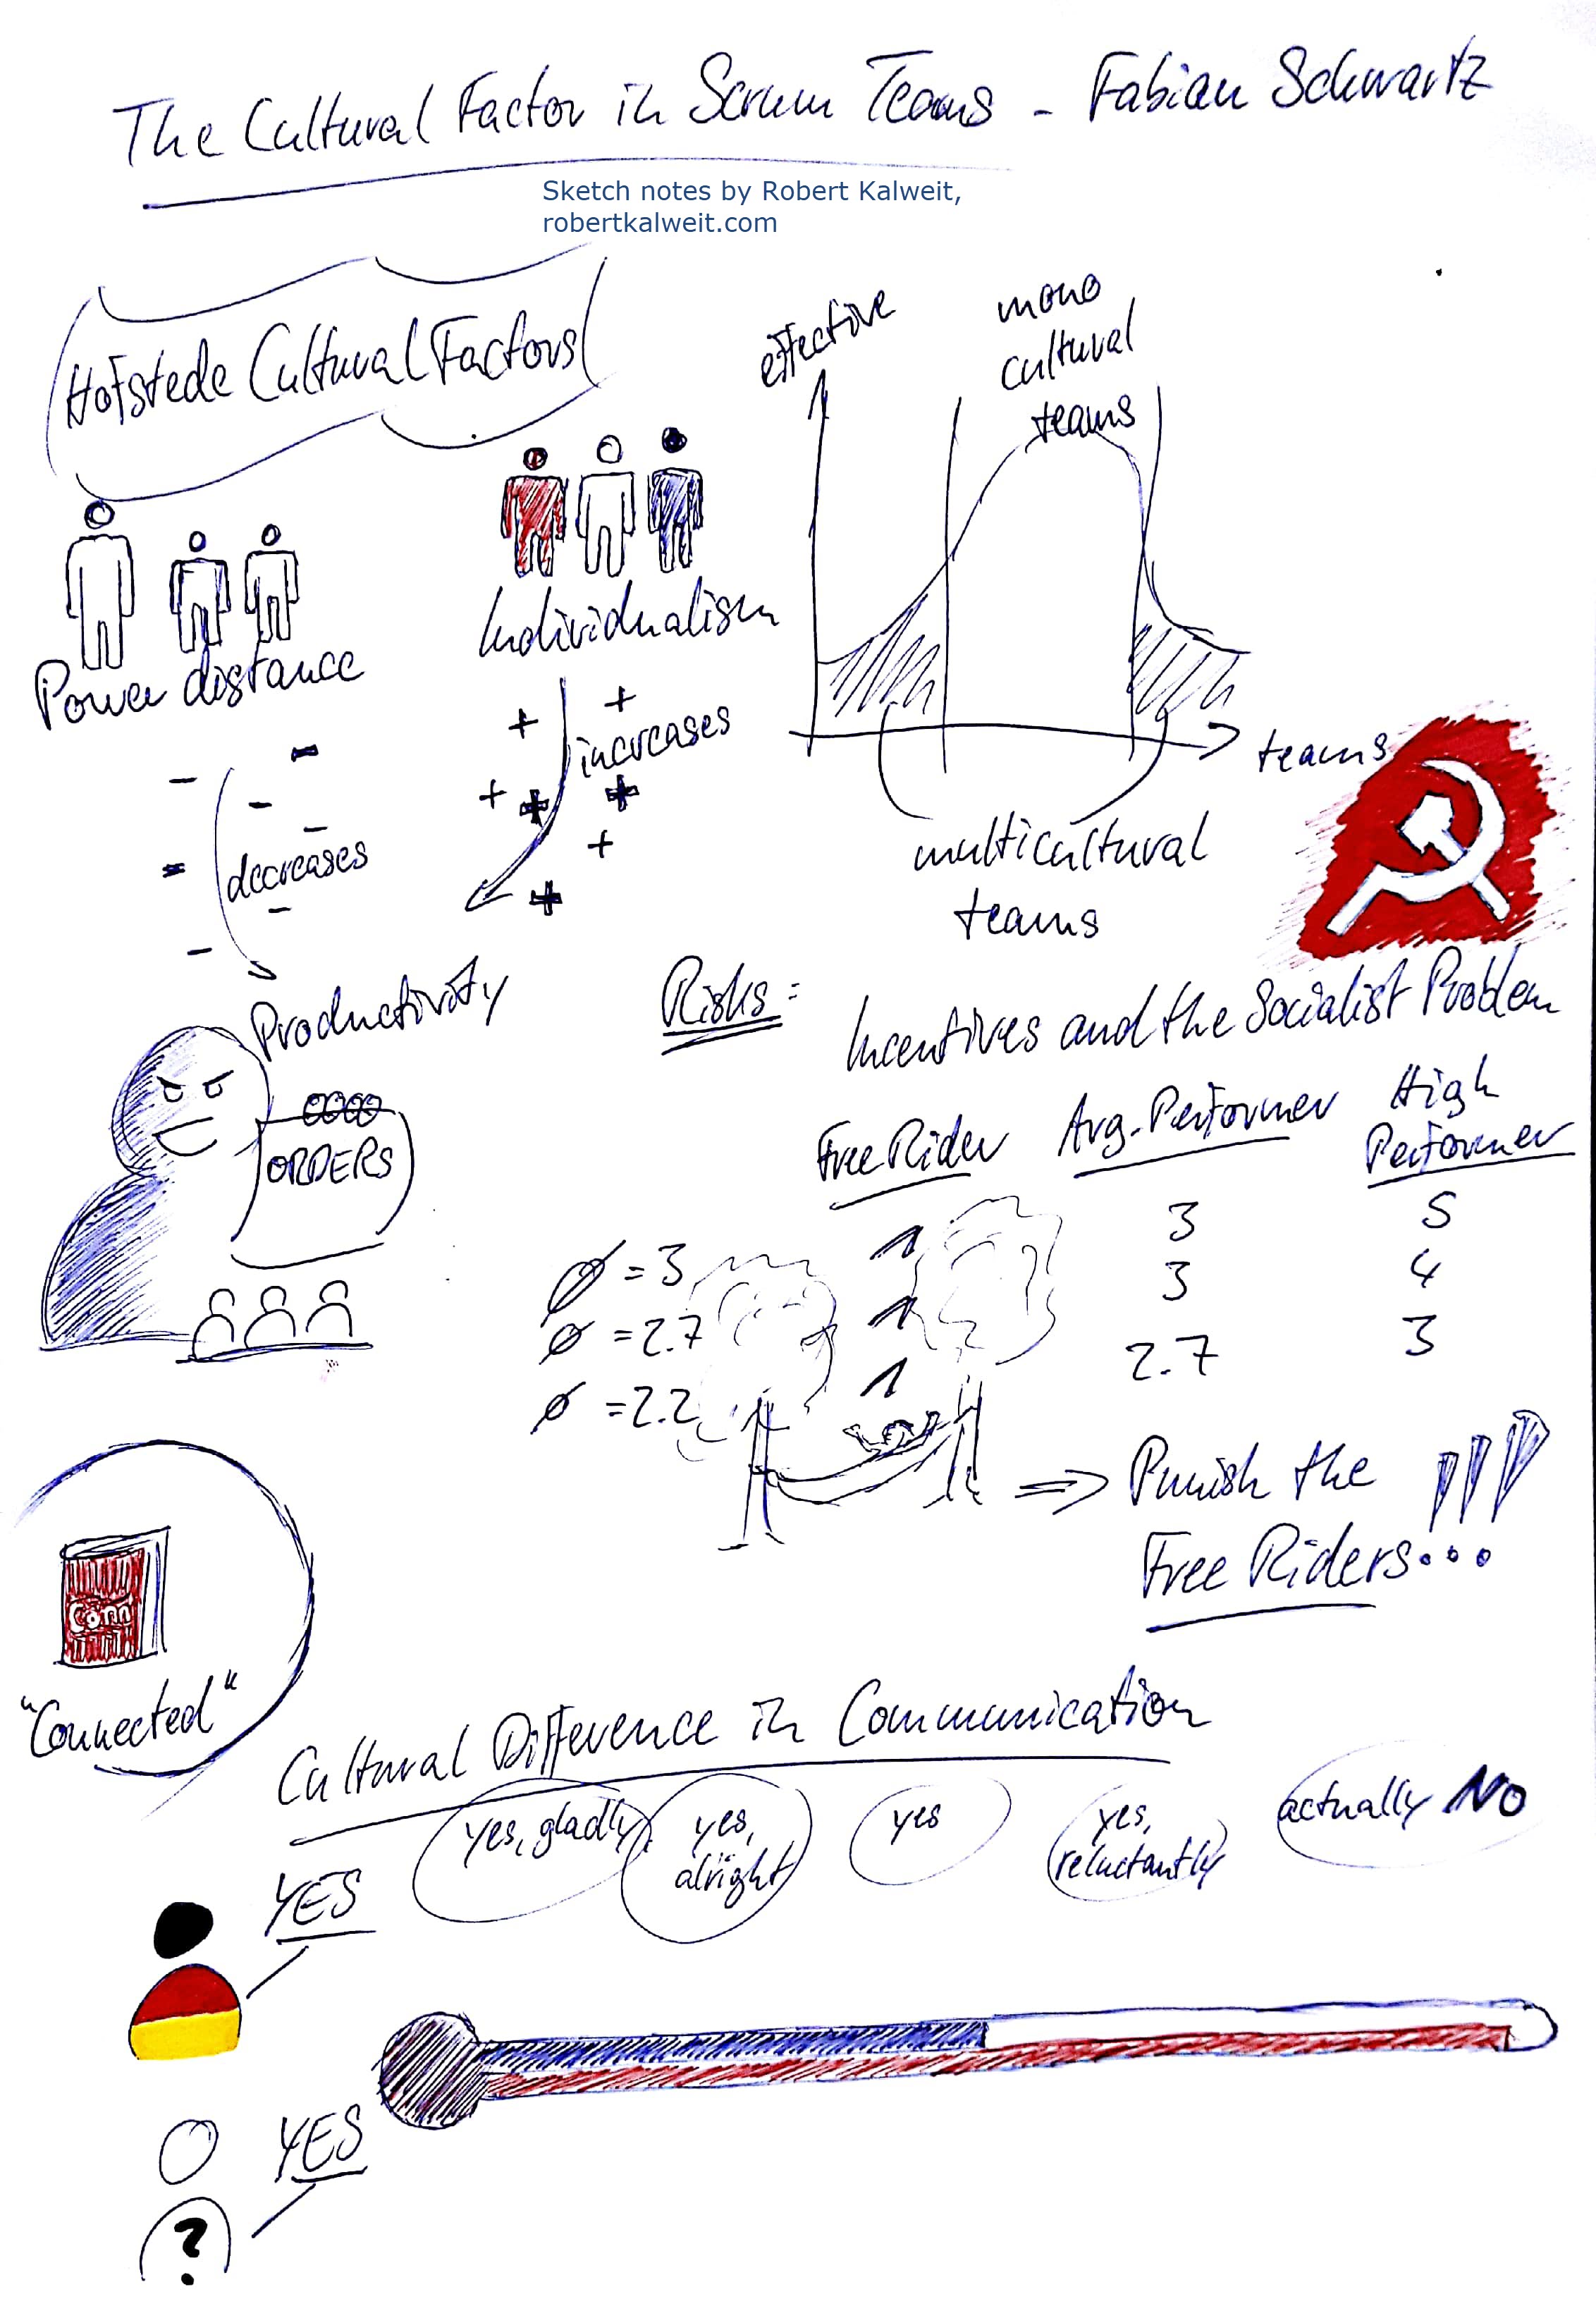 The Cultural Factor in Scrum Teams - Fabian Schwartz
Sketch notes by Robert Kalweit,
robertkalweit.com
Hofstede Cultural Factors
Power distance
Individualism
- decreases
+ increases
Productivity
ORDERS
effective
mono
cultural
teams
teams
multicultural
teams
Risks:
Incentives and the Socialist Problem
Free Rider
Avg. Performer
High
Performer
Ø = 3
1
3
5
Ø = 2.7
1
3
4
Ø = 2.2
1
2.7
3
=> Punish the
Free Riders...
!!!
Conn
"Connected"
Cultural Difference in Communication
yes, gladly
yes,
alright
yes
yes,
reluctantly
actually NO
YES
YES
?